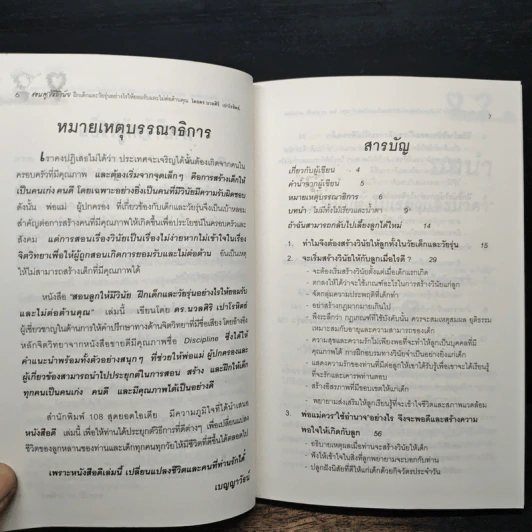 6
หมายเหตุบรรณาธิการ
เราคงปฏิเสธไม่ได้ว่า ประเทศจะเจริญได้นั้นต้องเกิดจากคนใน
ครอบครัวที่มีคุณภาพ และต้องเริ่มจากจุดเล็กๆ คือการสร้างเด็กให้
เป็นคนเก่ง คนดี โดยเฉพาะอย่างยิ่งเป็นคนที่มีวินัยมีความรับผิดชอบ
ดังนั้น พ่อแม่ ผู้ปกครอง ที่เกี่ยวข้องกับเด็กและวัยรุ่นจึงเป็นเป้าหลอม
สำคัญต่อการสร้างคนที่มีคุณภาพให้เกิดขึ้นเพื่อประโยชน์ในครอบครัวและ
สังคม แต่การสอนเรื่องวินัยเป็นเรื่องไม่ง่ายหากไม่เข้าใจในเรื่อง
จิตวิทยาเพื่อให้ผู้ถูกสอนเกิดการยอมรับและไม่ต่อต้าน อันเป็นเหตุ
ให้ไม่สามารถสร้างเด็กที่มีคุณภาพได้
หนังสือ "สอนลูกให้มีวินัย ฝึกเด็กและวัยรุ่นอย่างไรให้ยอมรับ
และไม่ต่อต้านคุณ" เล่มนี้ เขียนโดย ดร.นวลศิริ เปาโรหิตย์
ผู้เชี่ยวชาญในด้านการให้คำปรึกษาทางด้านจิตวิทยาที่มีชื่อเสียง โดยอ้างอิง
หลักจิตวิทยาจากหนังสือขายดีที่มีชื่อ Discipline ซึ่งได้ให้
คำแนะนำพร้อมทั้งตัวอย่างสนุกๆ ที่ช่วยให้พ่อแม่ ผู้ปกครองและ
ผู้เกี่ยวข้องสามารถนำไปประยุกต์ในการสอน สร้าง และฝึกให้เด็ก
ทุกคนเป็นคนเก่ง คนดี และมีคุณภาพได้เป็นอย่างดี
สำนักพิมพ์ 108 สุดยอดไอเดีย มีความภูมิใจที่ได้นำเสนอ
หนังสือดี เล่มนี้ เพื่อให้ท่านได้ประยุกต์วิธีการที่ดีต่างๆ เพื่อเปลี่ยนแปลง
ชีวิตของลูกหลานของท่านและเด็กทุกคนทุกวัยให้มีชีวิตที่ดีขึ้นได้ตลอดไป
เพราะหนังสือดีเล่มนี้ เปลี่ยนแปลงชีวิตและคนที่ท่านรักได้
เบญญาวัธน์
7
สารบัญ
เกี่ยวกับผู้เขียน - 4
คำนำจากผู้เขียน - 5
หมายเหตุบรรณาธิการ - 6
บทนำ : ไม่มีทั้งไม้เรียวและน้ำตา
ถ้าฉันสามารถกลับไปเลี้ยงลูกได้ใหม่ - 14
1. ทำไมจึงต้องสร้างวินัยให้ลูกทั้งในวัยเด็กและวัยรุ่น 15
2. จะเริ่มสร้างวินัยให้กับลูกเมื่อไรดี ? 29
- จะต้องเริ่มสร้างวินัยตั้งแต่เมื่อเด็กแรกเกิด
- ตกลงให้ได้ว่าจะใช้เกณฑ์อะไรในการสร้างวินัยแก่ลูก
- จัดกลุ่มความประพฤติที่เด็กทำ
- อย่าสร้างกฎมากมายเกินไป
- พึงระลึกว่า กฎเกณฑ์ที่ใช้บังคับนั้น ควรจะสมเหตุสมผล ยุติธรรม
เหมาะสมกับอายุและความสามารถของเด็ก
- ความสุขและความรักไม่เพียงพอที่จะทำให้ลูกเป็นบุคคลที่มี
คุณภาพได้ การฝึกอบรมทางวินัยจำเป็นอย่างยิ่งแก่เด็ก
- แสดงความรักของท่านที่มีต่อลูกให้เขาได้รับรู้เพื่อเขาจะได้เรียนรู้
ที่จะรักและเคารพท่านตอบ
- สร้างอิสรภาพที่มีขอบเขตให้แก่เด็ก
- พยายามส่งเสริมให้ลูกเรียนรู้ที่จะเข้าใจชีวิตและสภาพแวดล้อม
3. พ่อแม่ควร"ใช้อำนาจ"อย่างไร จึงจะพอดีและสร้างความ
พอใจให้เกิดกับลูก 56
- อธิบายเหตุผลเมื่อท่านจะสร้างวินัยให้เด็ก
- ฟังให้เข้าใจในสิ่งที่ลูกพยายามจะบอกกับท่าน
- ปลูกฝังนิสัยที่ดีให้แก่เด็กด้วยกิจวัตรประจำวัน